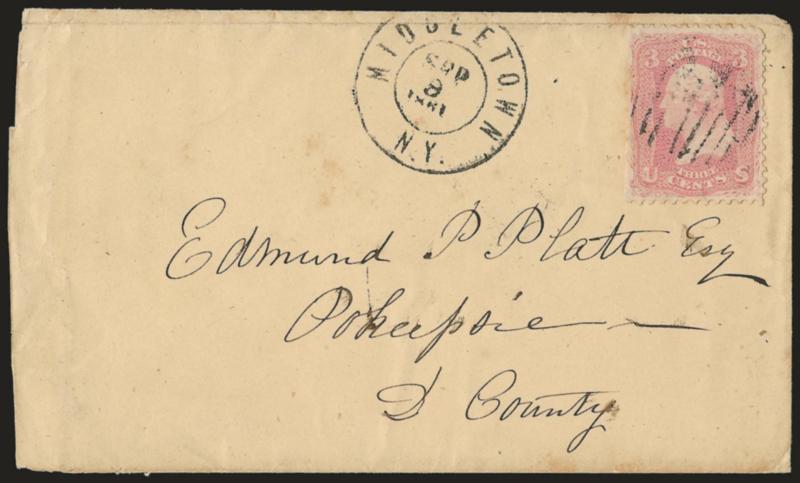 MIDDLETOWN
SEP
3
1861
N.Y.
3 3
U.S. POSTAGE
THREE
U CENTS S
Edmund P Platt Esq
Pokeepsie —
D County